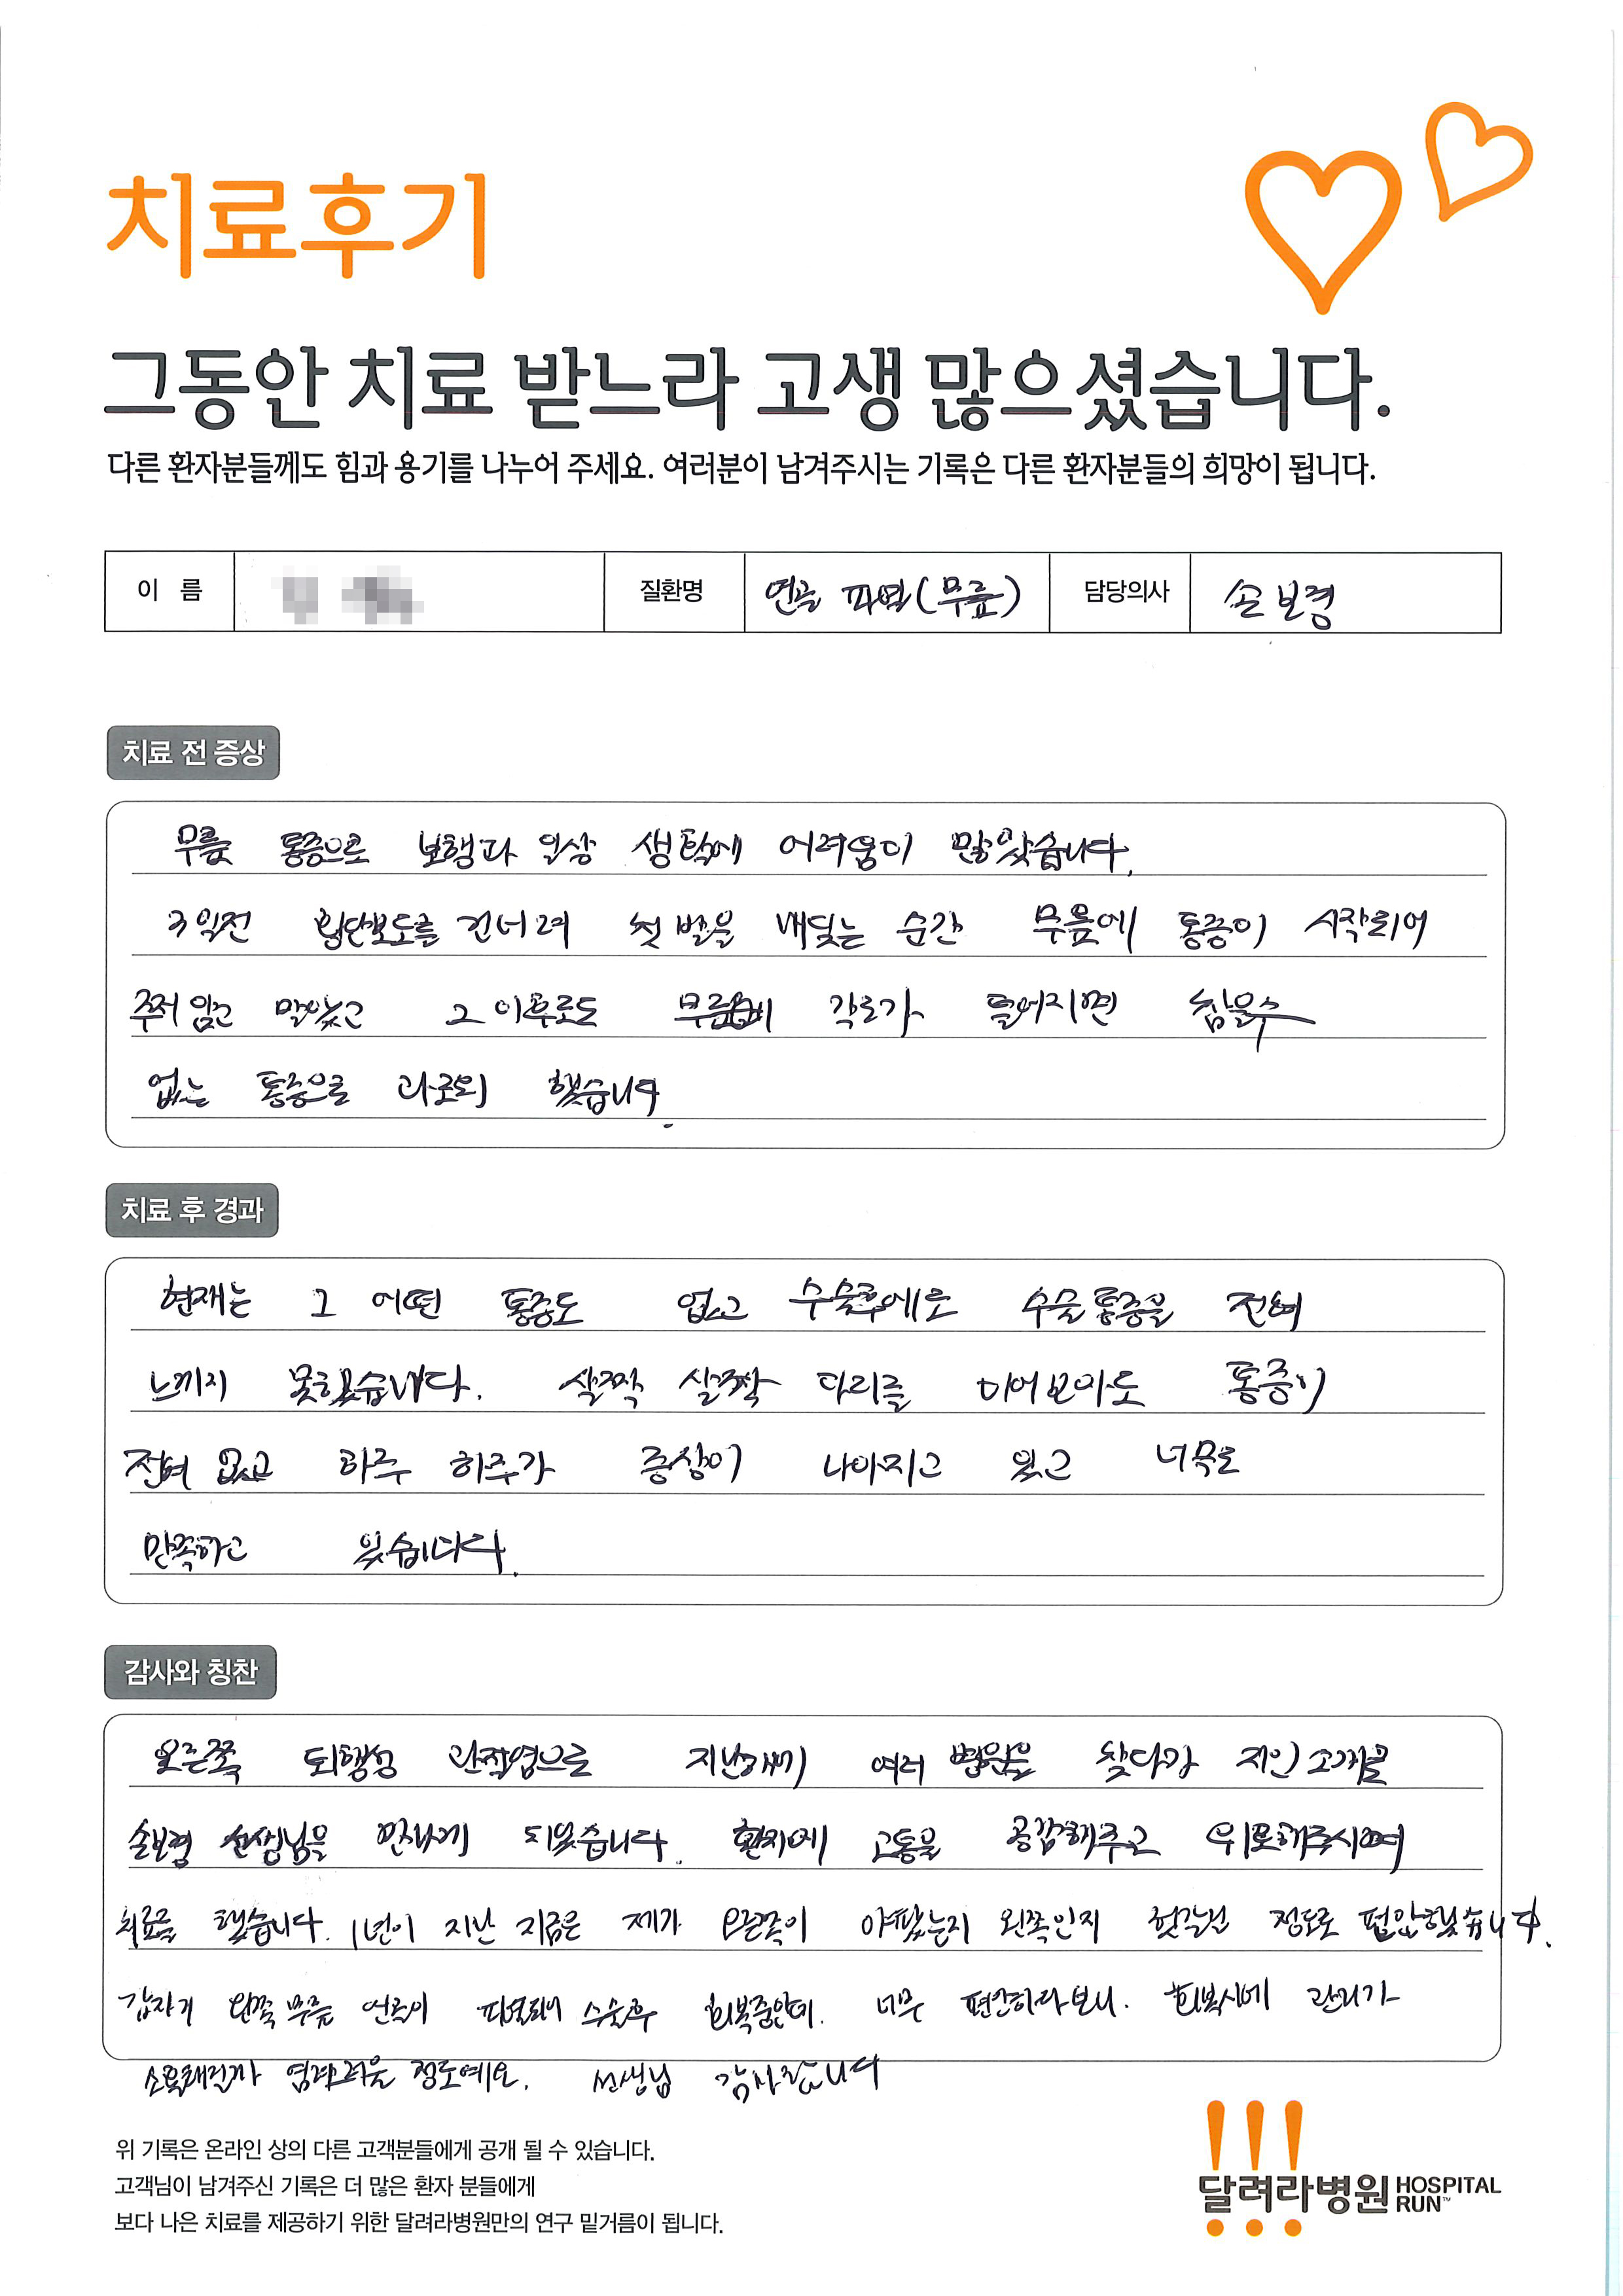 치료후기
그동안 치료 받느라 고생 많으셨습니다.
다른 환자분들께도 힘과 용기를 나누어 주세요. 여러분이 남겨주시는 기록은 다른 환자분들의 희망이 됩니다.
이 름 질환명 연골 파열(무릎) 담당의사 손보경
치료 전 증상
무릎 통증으로 보행과 일상 생활에 어려움이 많았습니다.
3일전 횡단보도를 건너려 첫 발을 내딛는 순간 무릎에 통증이 시작되어
주저 앉고 말았고 그 이후로도 무릎에 각도가 틀어지면 참을수
없는 통증으로 괴로워 했습니다.
치료 후 경과
현재는 그 어떤 통증도 없고 수술후에도 수술통증을 전혀
느끼지 못했습니다. 살짝 살짝 다리를 디어보아도 통증이
전혀 없고 하루 하루가 증상이 나아지고 있고 너무도
만족하고 있습니다.
감사와 칭찬
오른쪽 퇴행성 관절염으로 여러 병원을 찾다가 지인소개로
손보경 선생님을 만나게 되었습니다. 환자에 고통을 공감해주고 위로해주시며
치료를 했습니다. 1년이 지난 지금은 제가 오른쪽이 아팠는지 왼쪽인지 헷갈릴 정도로 편안했습니다.
갑자기 왼쪽 무릎 연골이 파열되어 수술후 회복중인데. 너무 편안하다보니. 회복시에 관리가
소홀해질까 염려러운 정도예요. 선생님 감사합니다
위 기록은 온라인 상의 다른 고객분들에게 공개 될 수 있습니다.
고객님이 남겨주신 기록은 더 많은 환자 분들에게
보다 나은 치료를 제공하기 위한 달려라병원만의 연구 밑거름이 됩니다.
달려라병원 HOSPITAL RUN™